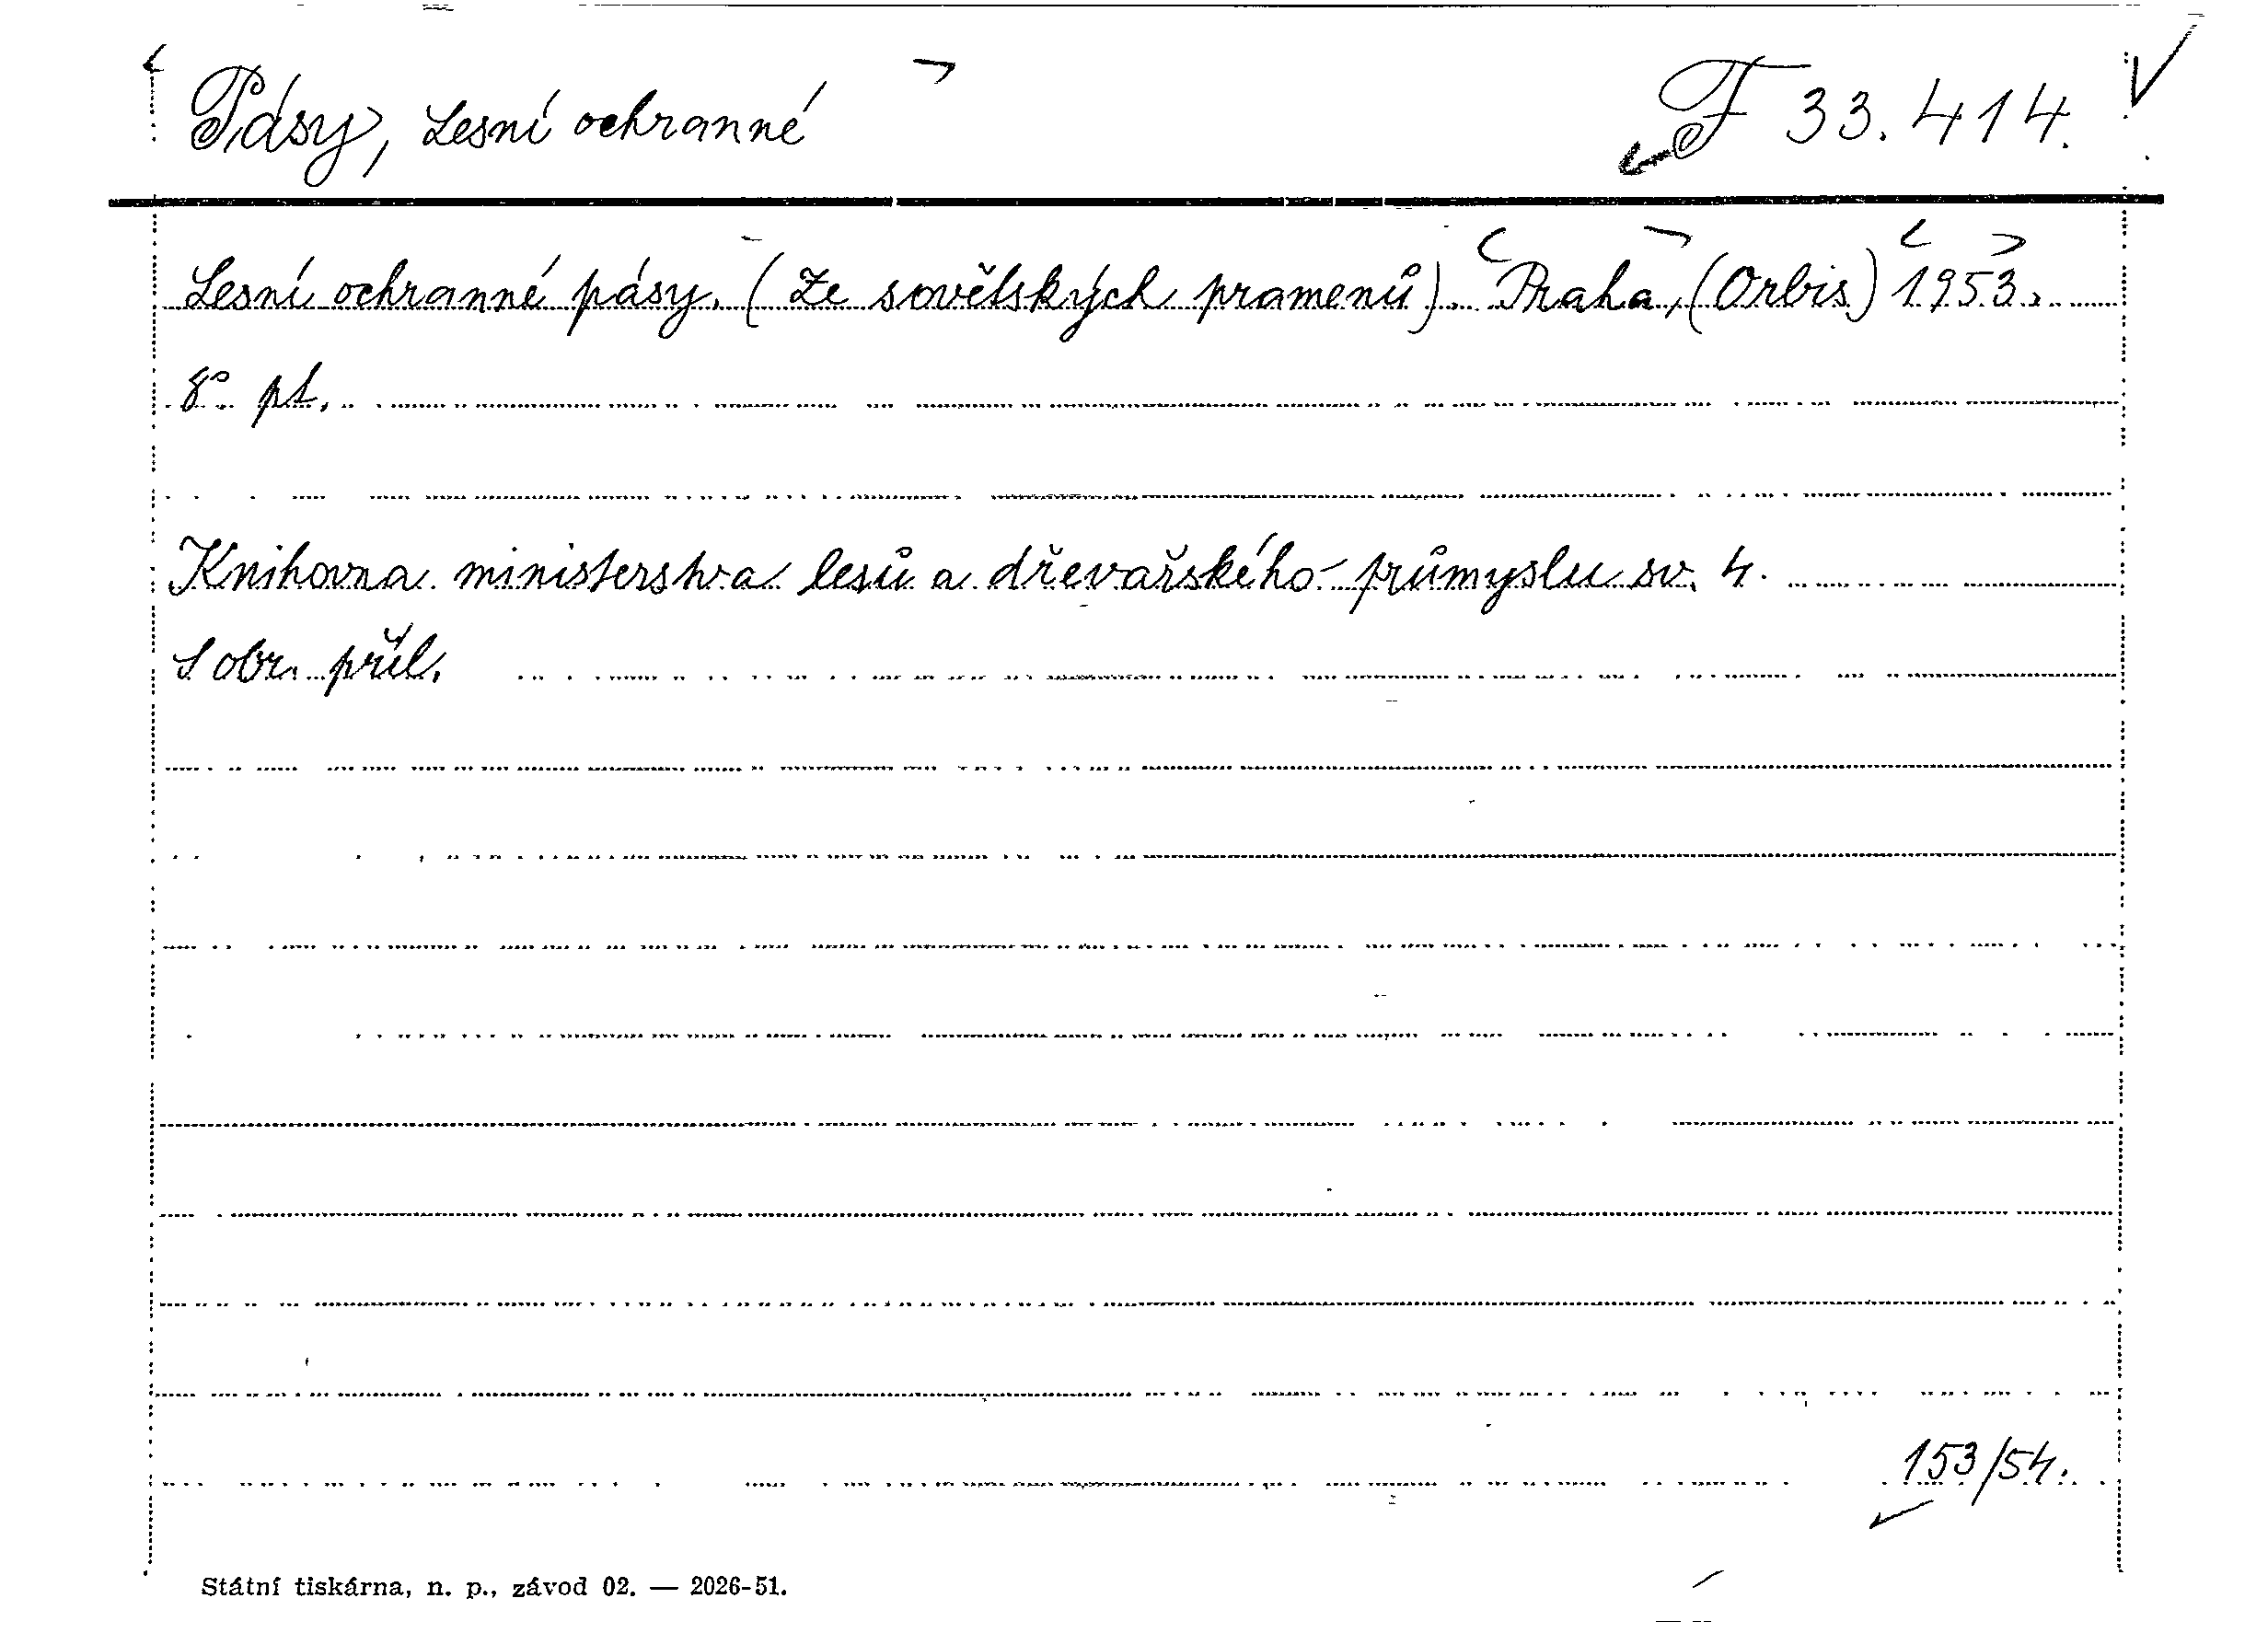 Pásy, Lesní ochranné F 33.414.
Lesní ochranné pásy. (Ze sovětských pramenů). Praha, (Orbis) 1953.
8° pt.
Knihovna ministerstva lesů a dřevařského průmyslu sv. 4.
S obr. příl.
153/54.
Státní tiskárna, n. p., závod 02. — 2026-51.